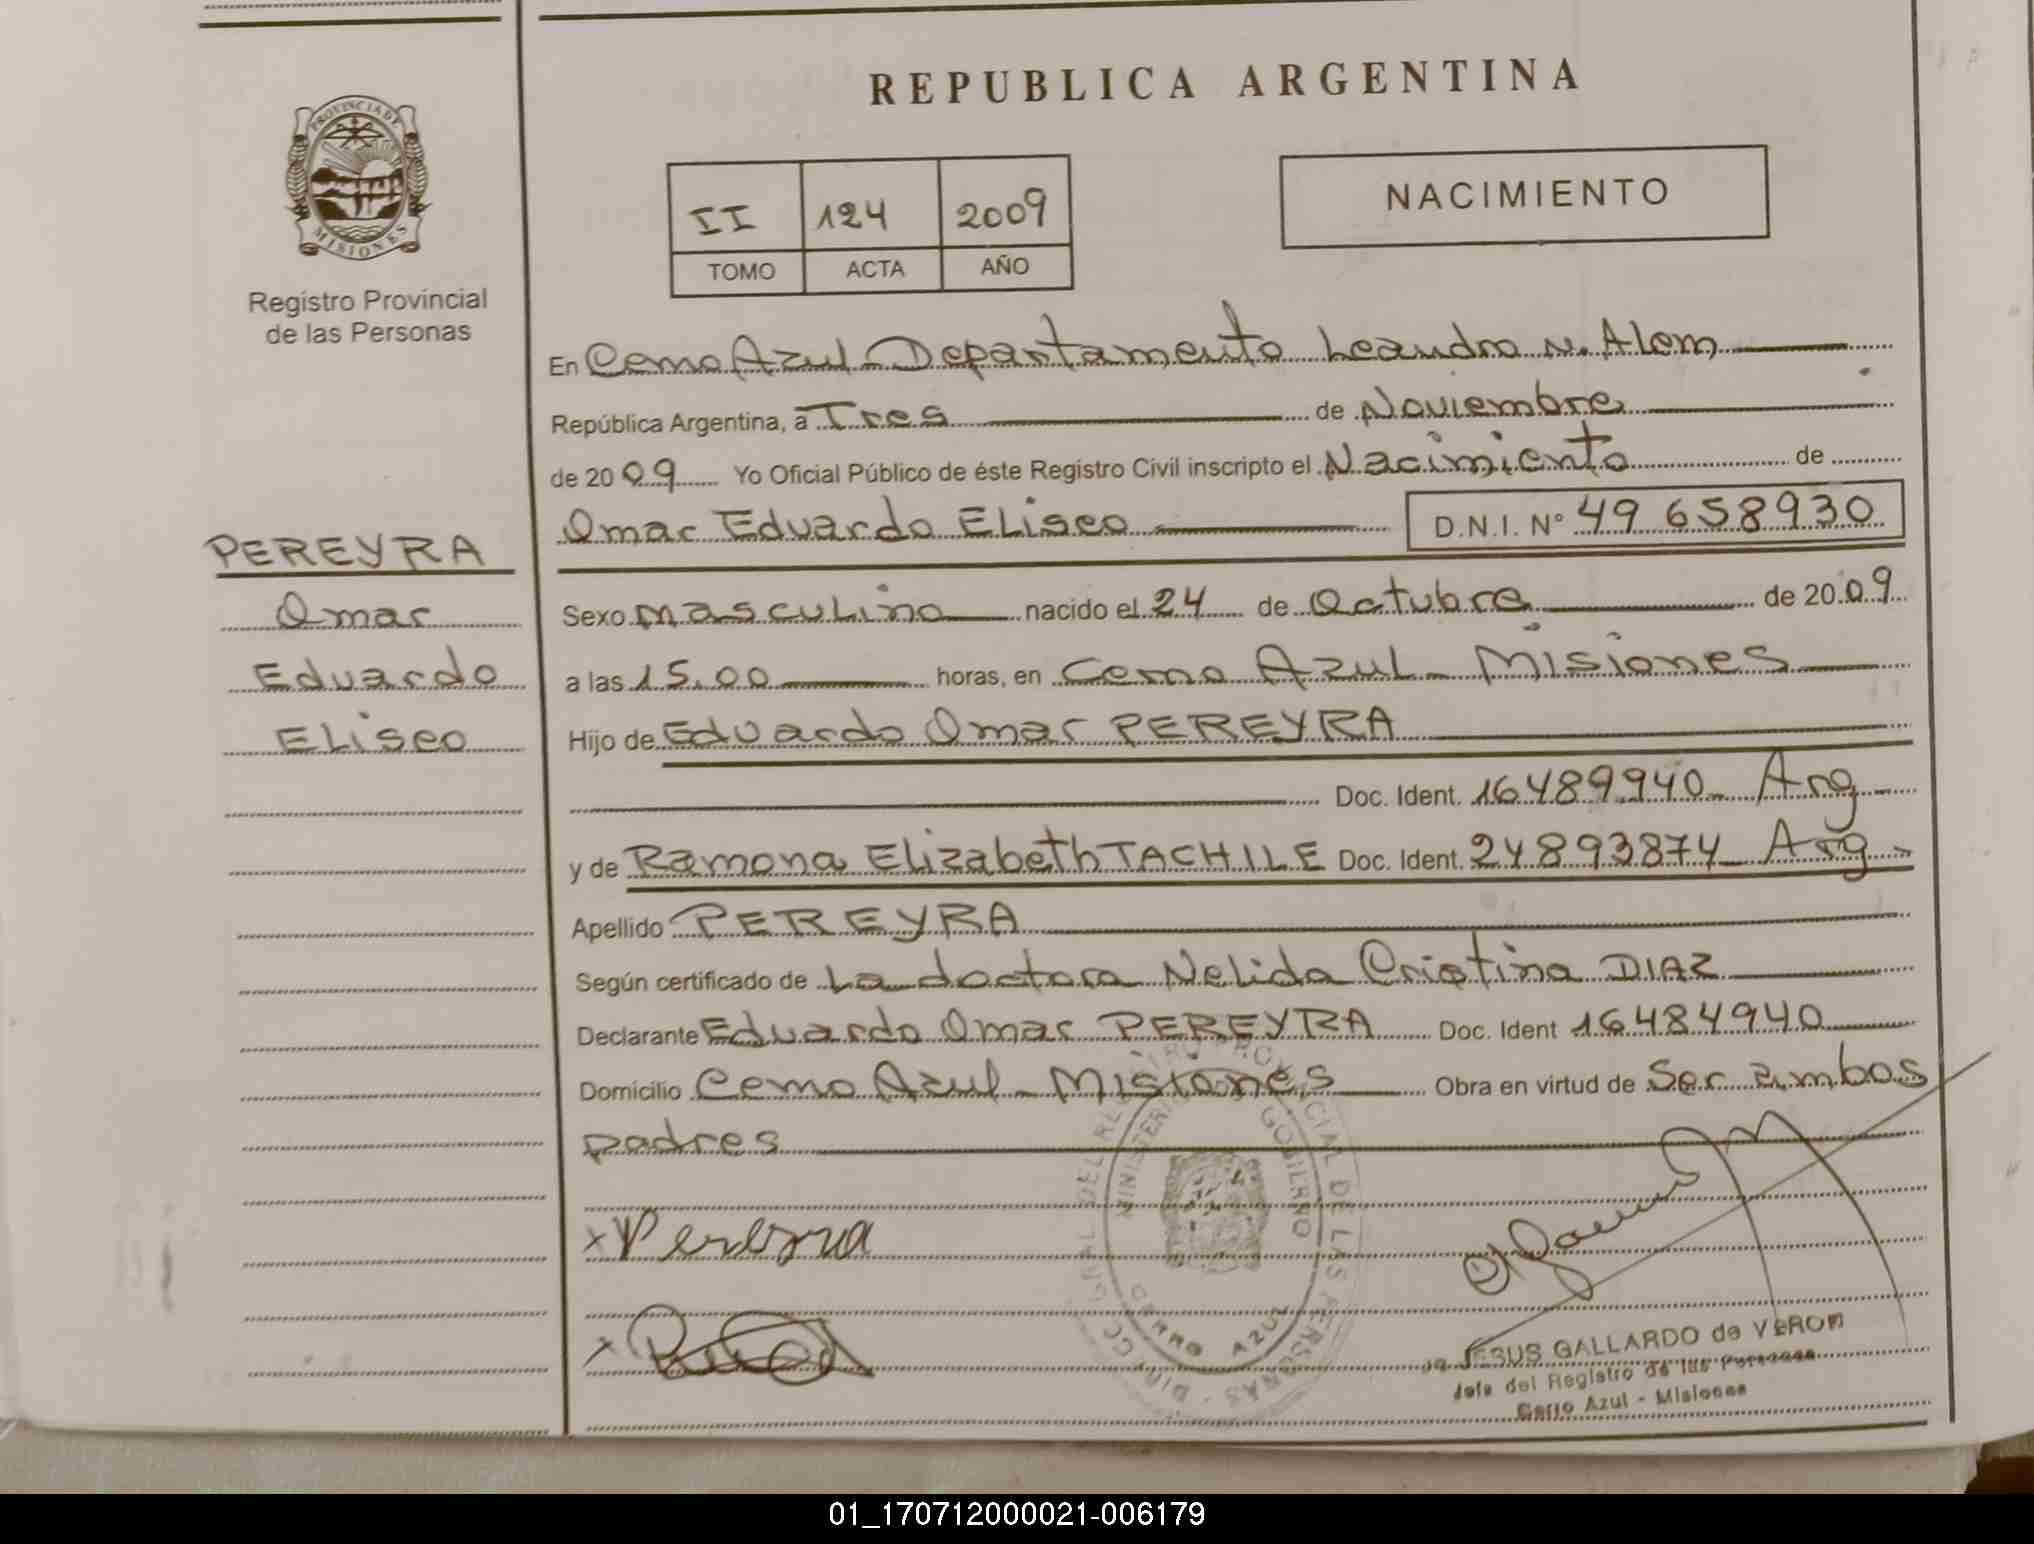 REPUBLICA ARGENTINA
PROVINCIA DE
MISIONES
Registro Provincial
de las Personas
NACIMIENTO
II 124 2009
TOMO ACTA AÑO
En Cerro Azul - Departamento Leandro N. Alem
República Argentina, a Tres de Noviembre
de 2009 Yo Oficial Público de éste Registro Civil inscripto el Nacimiento de
Omar Eduardo Eliseo D.N.I. Nº 49 658930
PEREYRA
Omar
Eduardo
Eliseo
Sexo masculino nacido el 24 de Octubre de 2009
a las 15.00 horas, en Cerro Azul - Misiones
Hijo de Eduardo Omar PEREYRA
Doc. Ident. 16489940 - Arg
y de Ramona Elizabeth TACHILE Doc. Ident. 24893874 - Arg -
Apellido PEREYRA
Según certificado de La doctora Nelida Cristina DIAZ
Declarante Eduardo Omar PEREYRA Doc. Ident 16484940
Domicilio Cerro Azul - Misiones Obra en virtud de Ser ambos
padres
x Pereyra
x
MINISTERIO GOBIERNO
PROVINCIAL DE LAS PERSONAS
CERRO AZUL
JESUS GALLARDO de VERON
Jefe del Registro de las Personas
Cerro Azul - Misiones
01_170712000021-006179